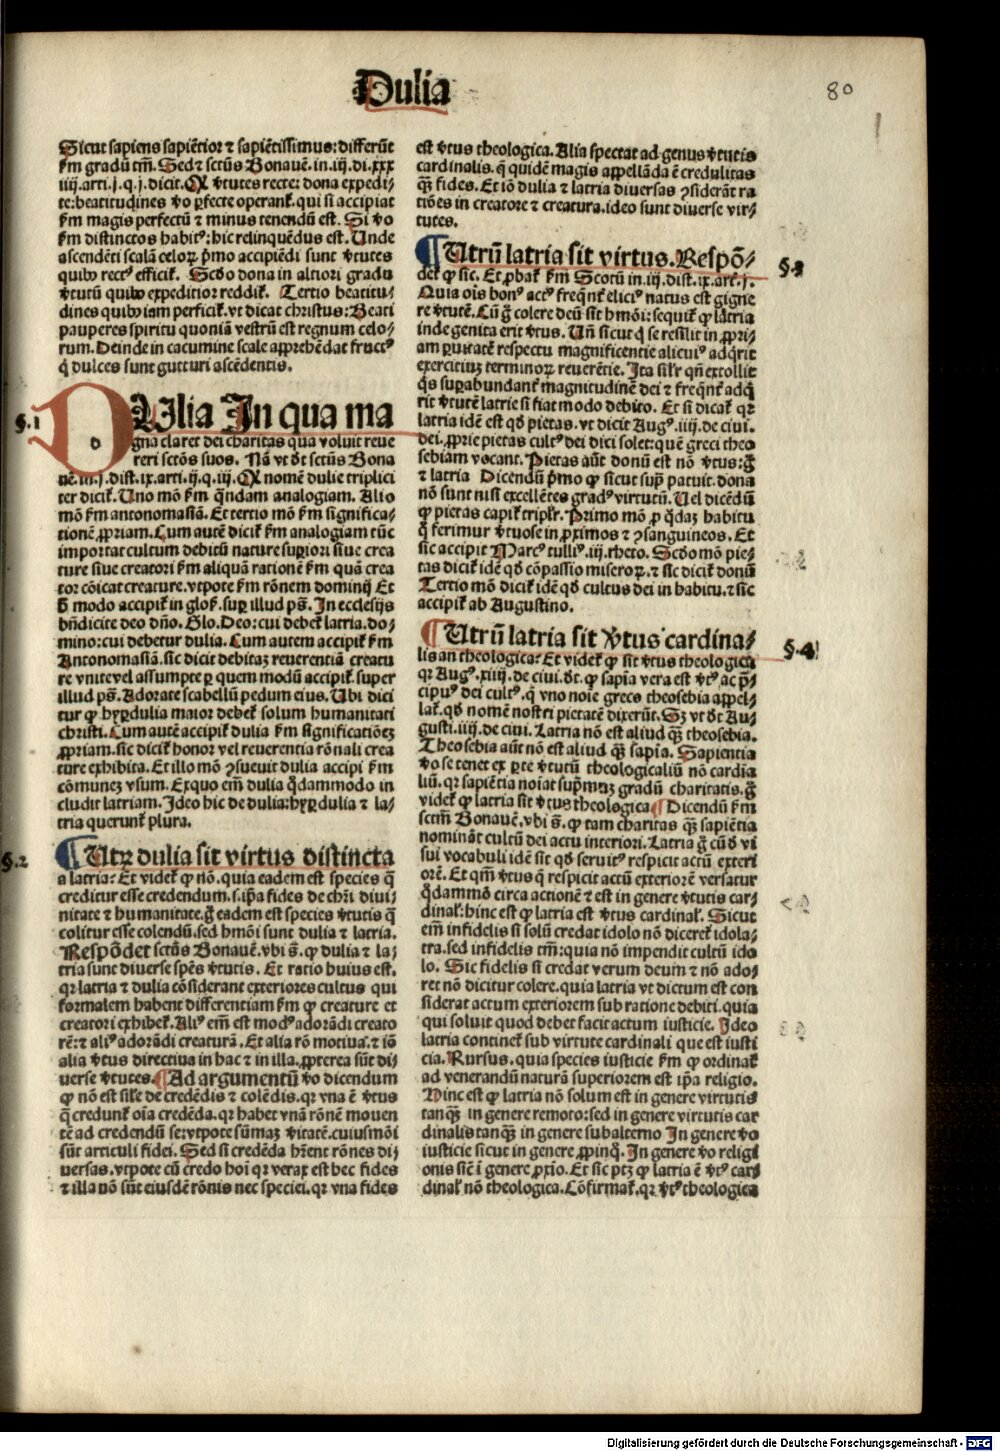 Dulia
80
Sicut sapiens sapiẽtior ⁊ sapiẽtissimus: differũt
ẜm gradũ tm̃. Sed ⁊ sctũs Bonauẽ. in. iij. di. xxx
iiij. arti. j. q. j. dicit. Qꝛ v̾tutes recte: dona expedi⸗
te: beatitudines v̾o ꝑfecte operant̃. qui si accipiat̃
ẜm magis perfectũ ⁊ minus tenendũ est. Si v̾o
ẜm distinctos habitꝰ: hic relinquẽdus est. Unde
ascendẽti scalã celoꝝ pͥmo accipiẽdi sunt v̾tutes
quibꝰ rectꝰ efficit̃. Scd̾o dona in altiori gradu
v̾tutũ quibꝰ expeditior reddit̃. Tertio beatitu⸗
dines quibꝰ iam perficit̃. vt dicat christus: Beati
pauperes spiritu quoniã vestrũ est regnum celo⸗
rum. Deinde in cacumine scale apprehẽdat fructꝰ
q̃ dulces sunt gutturi ascẽdentis.
§.1
DUlia In qua ma
gna claret dei charitas qua voluit reue
reri sctõs suos. Nã vt d̾t sctũs Bona
uẽ. in. j. dist. ix. arti. ij. q. iij. Qꝛ nomẽ dulie triplici
ter dicit̃. Uno mõ ẜm q̃ndam analogiam. Alio
mõ ẜm antonomasiã. Et tertio mõ ẜm significa⸗
tionẽ ꝓpriam. Cum autẽ dicit̃ ẜm analogiam tũc
importat cultum debitũ nature supͥiori siue crea
ture siue creatori ẜm aliquã rationẽ ẜm quã crea
tor cõicat creature. vtpote ẜm rõnem dominij Et
h̾ modo accipit̃ in gloſ. suꝑ illud ps̃. In ecclesijs
bñdicite deo dño. Glo. Deo: cui debet̃ latria. do⸗
mino: cui debetur dulia. Cum autem accipit̃ ẜm
Antonomasiã. sic dicit debitaꝫ reuerentiã creatu
re vnite vel assumpte ꝑ quem modũ accipit̃. super
illud ps̃. Adorate scabellũ pedum eius. Ubi dici
tur ꝙ hyꝑdulia maior debet̃ solum humanitati
christi. Cum autẽ accipit̃ dulia ẜm significatiõeꝫ
ꝓpriam. sic dicit̃ honor vel reuerentia rõnali crea
ture exhibita. Et illo mõ ꝯsueuit dulia accipi ẜm
cõmunez vsum. Ex quo em̃ dulia q̃dammodo in
cludit latriam. Ideo hic de dulia: hyꝑdulia ⁊ la⸗
tria querunt̃ plura.
§.2
¶ Utrꝫ dulia sit virtus distincta
a latria? Et videt̃ ꝙ nõ. quia eadem est species q̃
creditur esse credendum. s. ip̃a fides de chr̃i diui⸗
nitate ⁊ humanitate. g̃ eadem est species v̾tutis q̃
colitur esse colendũ. sed hmõi sunt dulia ⁊ latria.
Respõdet sctũs Bonauẽ. vbi s̃. ꝙ dulia ⁊ la⸗
tria sunt diuerse spẽs v̾tutis. Et ratio huius est.
qꝛ latria ⁊ dulia cõsiderant exteriores cultus qui
formalem habent differentiam ẜm ꝙ creature et
creatori exhibet̃. Aliꝰ em̃ est modꝰ adorãdi creato
rẽ: ⁊ aliꝰ adorãdi creaturã. Et alia rõ motiua. ⁊ iõ
alia v̾tus directiua in hac ⁊ in illa. ꝓpterea sũt di⸗
uerse v̾tutes. ¶ Ad argumentũ v̾o dicendum
ꝙ nõ est sil̃e de credẽdis ⁊ colẽdis. qꝛ vna ẽ v̾tus
q̃ credunt̃ oĩa credẽda. qꝛ habet vnã rõnẽ mouen
tẽ ad credendũ se: vtpote sũmaꝫ v̾itatẽ. cuiusmõi
sũt articuli fidei. Sed si credẽda hr̃ent rõnes di⸗
uersas. vtpote cũ credo hoĩ qꝛ verax est hec fides
⁊ illa nõ sũt eiusdẽ rõnis nec speciei. qꝛ vna fides
est v̾tus theologica. Alia spectat ad genus v̾tutis
cardinalis. q̃ quidẽ magis appellãda ẽ credulitas
q̃ꝫ fides. Et iõ dulia ⁊ latria diuersas ꝯsiderãt ra
tiões in creatore ⁊ creatura. ideo sunt diuerse vir⸗
tutes.
¶ Utrũ latria sit virtus. Respõ⸗
§.3
det ꝙ sic. Et ꝓbat̃ ẜm Scotũ in. iij. dist. ix. art. j.
Quia oĩs bonꝰ actꝰ freq̃nt̃ elicitꝰ natus est gigne
re v̾tutẽ. Cũ g̃ colere deũ sit hmõi: sequit̃ ꝙ latria
inde genita erit v̾tus. Uñ sicut q̃ se resilit in ꝓpri⸗
am ꝑuitatẽ respectu magnificentie alicuiꝰ adq̃rit
exercitiuꝫ terminoꝝ reuerẽtie. Ita sil̃r qñ extollit
q̃s suꝑabundant̃ magnitudinẽ dei ⁊ freq̃nt̃ adq̃
rit v̾tutẽ latrie si fiat modo debito. Et si dicat̃ qꝛ
latria idẽ est qd̾ pietas. vt dicit Augꝰ. iiij. de ciui.
dei. ꝓprie pietas cultꝰ dei dici solet: quẽ greci theo
sebiam vocant. Pietas aũt donũ est nõ v̾tus: g̃
⁊ latria Dicendũ pͥmo ꝙ sicut supͣ patuit. dona
nõ sunt nisi excellẽtes gradꝰ virtutũ. Uel dicẽdũ
ꝙ pietas capit̃ tripl̃r. Primo mõ ꝑ q̃daꝫ habitu
q̃ ferimur v̾tuose in ꝓximos ⁊ ꝯsanguineos. Et
sic accipit Marcꝰ tulliꝰ. iij. rheto. Scd̾o mõ pie⸗
tas dicit̃ idẽ qd̾ cõpassio miseroꝝ. ⁊ sic dicit̃ donũ
Tertio mõ dicit̃ idẽ qd̾ cultus dei in habitu. ⁊ sic
accipit̃ ab Augustino.
¶ Utrũ latria sit v̾tus cardina⸗
§.4
lis an theologica? Et videt̃ ꝙ sit v̾tus theologica
qꝛ Augꝰ. xiiij. de ciui. d̾t. ꝙ sapĩa vera est v̾tꝰ ac pͥ⸗
cipuꝰ dei cultꝰ. q̃ vno noĩe grece theosebia appel⸗
lat̃. qd̾ nomẽ nostri pietatẽ dixerũt. Sꝫ vt d̾t Au⸗
gusti. iiij. de ciui. Latria nõ est aliud q̃ꝫ theosebia.
Theosebia aũt nõ est aliud q̃ꝫ sapĩa. Sapientia
v̾o se tenet ex ꝑte v̾tutũ theologicaliũ nõ cardĩa
liũ. qꝛ sapiẽtia noĩat supͥmuꝫ gradũ charitatis. g̃
videt̃ ꝙ latria sit v̾tus theologica ¶ Dicendũ ẜm
sctm̃ Bonauẽ. vbi s̃. ꝙ tam charitas q̃ꝫ sapiẽtia
nominãt cultũ dei actu interiori. Latria g̃ cũ d̾ vi
sui vocabuli idẽ sit qd̾ seruitꝰ respicit actũ exteri
orẽ. Et qm̃ v̾tus q̃ respicit actũ exteriorẽ versatur
q̃dammõ circa actionẽ ⁊ est in genere v̾tutis car⸗
dinal̃: hinc est ꝙ latria est v̾tus cardinal̃. Sicut
em̃ infidelis si solũ credat idolo nõ diceret̃ idola⸗
tra. sed infidelis tm̃: quia nõ impendit cultũ ido
lo. Sic fidelis si credat verum deum ⁊ nõ ado⸗
ret nõ dicitur colere. quia latria vt dictum est con
siderat actum exteriorem sub ratione debiti. quia
qui soluit quod debet facit actum iusticie. Ideo
latria continet̃ sub virtute cardinali que est iusti
cia. Rursus. quia species iusticie ẜm ꝙ ordinat̃
ad venerandũ naturã superiorem est ip̃a religio.
Hinc est ꝙ latria nõ solum est in genere virtutis
tanq̃ꝫ in genere remoto: sed in genere virtutis car
dinalis tanq̃ꝫ in genere subalterno In genere v̾o
iusticie sicut in genere ꝓpinq̃. In genere v̾o religi
onis siẽ ĩ genere ꝓxio. Et sic ptꝫ ꝙ latria ẽ v̾tꝰ car⸗
dinal̃ nõ theologica. Cõfirmat̃. qꝛ v̾tꝰ theologica
Digitalisierung gefördert durch die Deutsche Forschungsgemeinschaft - DFG